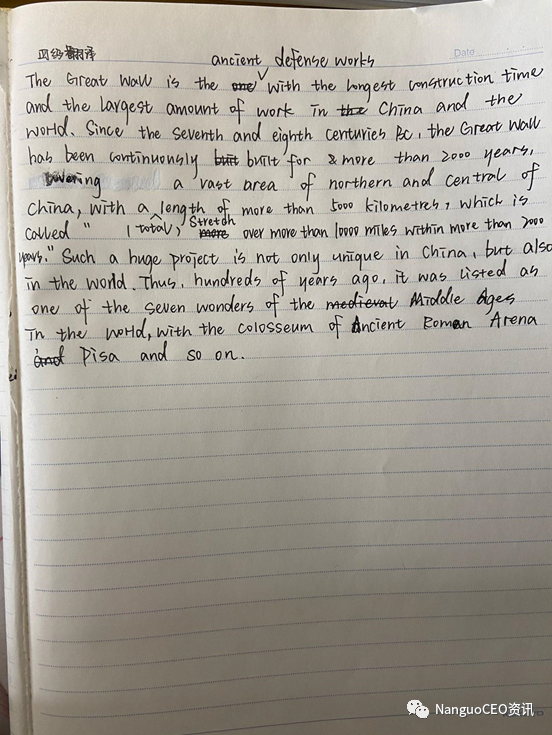 四级翻译
Date
ancient defense works
The Great Wall is the one with the longest construction time
and the largest amount of work in the China and the
world. Since the seventh and eighth centuries BC, the Great Wall
has been continuously built built for & more than 2000 years,
covering a vast area of northern and central of
China, with a length of more than 5000 kilometres, which is
total, Stretch
called " more over more than 10000 miles within more than 2000
years." Such a huge project is not only unique in China, but also
in the world. Thus, hundreds of years ago, it was listed as
one of the seven wonders of the medieval Middle Ages
in the world, with the colosseum of Ancient Roman Arena
and Pisa and so on.
NanguoCEO资讯